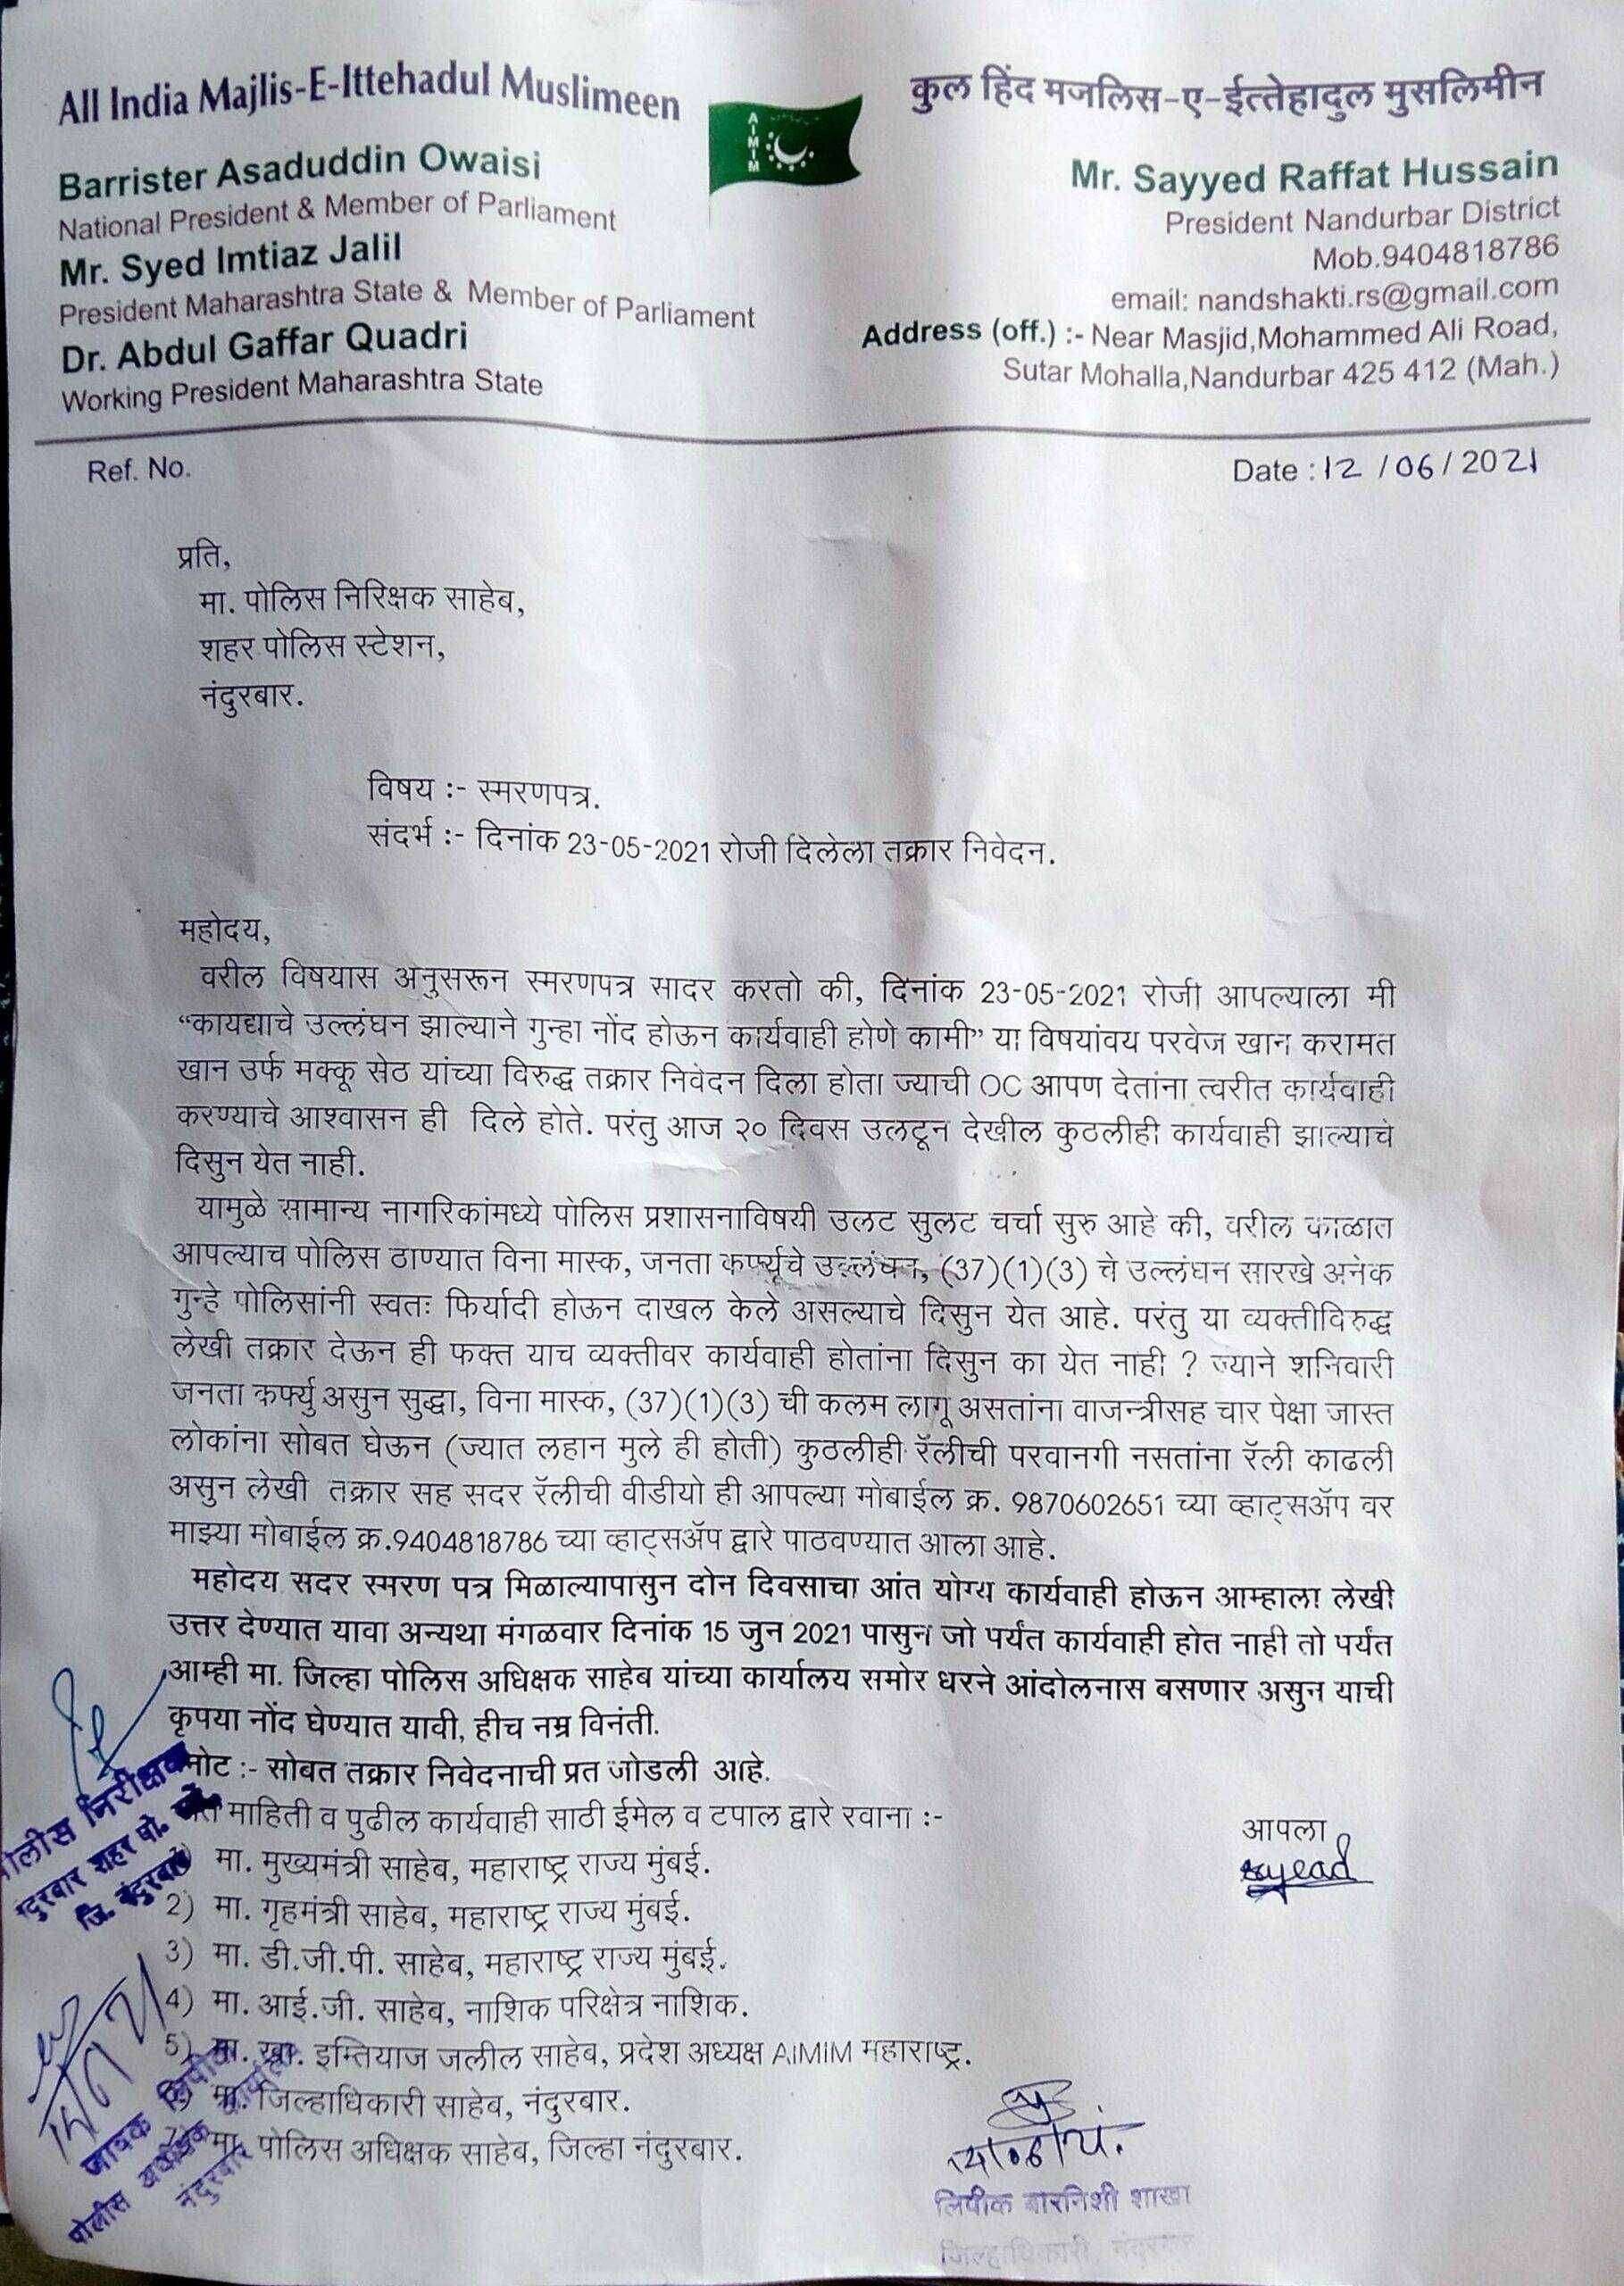 All India Majlis-E-Ittehadul Muslimeen
Barrister Asaduddin Owaisi
National President & Member of Parliament
Mr. Syed Imtiaz Jalil
President Maharashtra State & Member of Parliament
Dr. Abdul Gaffar Quadri
Working President Maharashtra State
AIMIM
कुल हिंद मजलिस-ए-ईत्तेहादुल मुसलिमीन
Mr. Sayyed Raffat Hussain
President Nandurbar District
Mob.9404818786
email: nandshakti.rs@gmail.com
Address (off.) :- Near Masjid,Mohammed Ali Road,
Sutar Mohalla,Nandurbar 425 412 (Mah.)
Ref. No.
Date : 12 /06/2021
प्रति,
मा. पोलिस निरिक्षक साहेब,
शहर पोलिस स्टेशन,
नंदुरबार.
विषय :- स्मरणपत्र.
संदर्भ :- दिनांक 23-05-2021 रोजी दिलेला तक्रार निवेदन.
महोदय,
वरील विषयास अनुसरून स्मरणपत्र सादर करतो की, दिनांक 23-05-2021 रोजी आपल्याला मी
“कायद्याचे उल्लंघन झाल्याने गुन्हा नोंद होऊन कार्यवाही होणे कामी” या विषयांवय परवेज खान करामत
खान उर्फ मक्कू सेठ यांच्या विरुद्ध तक्रार निवेदन दिला होता ज्याची OC आपण देतांना त्वरीत कार्यवाही
करण्याचे आश्वासन ही दिले होते. परंतु आज २० दिवस उलटून देखील कुठलीही कार्यवाही झाल्याचे
दिसुन येत नाही.
यामुळे सामान्य नागरिकांमध्ये पोलिस प्रशासनाविषयी उलट सुलट चर्चा सुरु आहे की, वरील काळात
आपल्याच पोलिस ठाण्यात विना मास्क, जनता कर्फ्यूचे उल्लंघन, (37)(1)(3) चे उल्लंघन सारखे अनेक
गुन्हे पोलिसांनी स्वतः फिर्यादी होऊन दाखल केले असल्याचे दिसुन येत आहे. परंतु या व्यक्तीविरुद्ध
लेखी तक्रार देऊन ही फक्त याच व्यक्तीवर कार्यवाही होतांना दिसुन का येत नाही ? ज्याने शनिवारी
जनता कर्फ्यु असुन सुद्धा, विना मास्क, (37)(1)(3) ची कलम लागू असतांना वाजन्त्रीसह चार पेक्षा जास्त
लोकांना सोबत घेऊन (ज्यात लहान मुले ही होती) कुठलीही रॅलीची परवानगी नसतांना रॅली काढली
असुन लेखी तक्रार सह सदर रॅलीची वीडीयो ही आपल्या मोबाईल क्र. 9870602651 च्या व्हाट्सॲप वर
माझ्या मोबाईल क्र.9404818786 च्या व्हाट्सॲप द्वारे पाठवण्यात आला आहे.
महोदय सदर स्मरण पत्र मिळाल्यापासुन दोन दिवसाचा आंत योग्य कार्यवाही होऊन आम्हाला लेखी
उत्तर देण्यात यावा अन्यथा मंगळवार दिनांक 15 जुन 2021 पासुन जो पर्यंत कार्यवाही होत नाही तो पर्यंत
आम्ही मा. जिल्हा पोलिस अधिक्षक साहेब यांच्या कार्यालय समोर धरने आंदोलनास बसणार असुन याची
कृपया नोंद घेण्यात यावी, हीच नम्र विनंती.
नोट :- सोबत तक्रार निवेदनाची प्रत जोडली आहे.
माहिती व पुढील कार्यवाही साठी ईमेल व टपाल द्वारे रवाना :-
मा. मुख्यमंत्री साहेब, महाराष्ट्र राज्य मुंबई.
2) मा. गृहमंत्री साहेब, महाराष्ट्र राज्य मुंबई.
3) मा. डी.जी.पी. साहेब, महाराष्ट्र राज्य मुंबई.
4) मा. आई.जी. साहेब, नाशिक परिक्षेत्र नाशिक.
5) मा. खा. इम्तियाज जलील साहेब, प्रदेश अध्यक्ष AIMIM महाराष्ट्र.
मा. जिल्हाधिकारी साहेब, नंदुरबार.
मा. पोलिस अधिक्षक साहेब, जिल्हा नंदुरबार.
आपला
पोलीस निरीक्षक
शहर पो.
जि. नंदुरबार
जावक लिपीक
पोलीस अधिक्षक कार्यालय
नंदुरबार
लिपीक बारनिशी शाखा
जिल्हाधिकारी, नंदुरबार